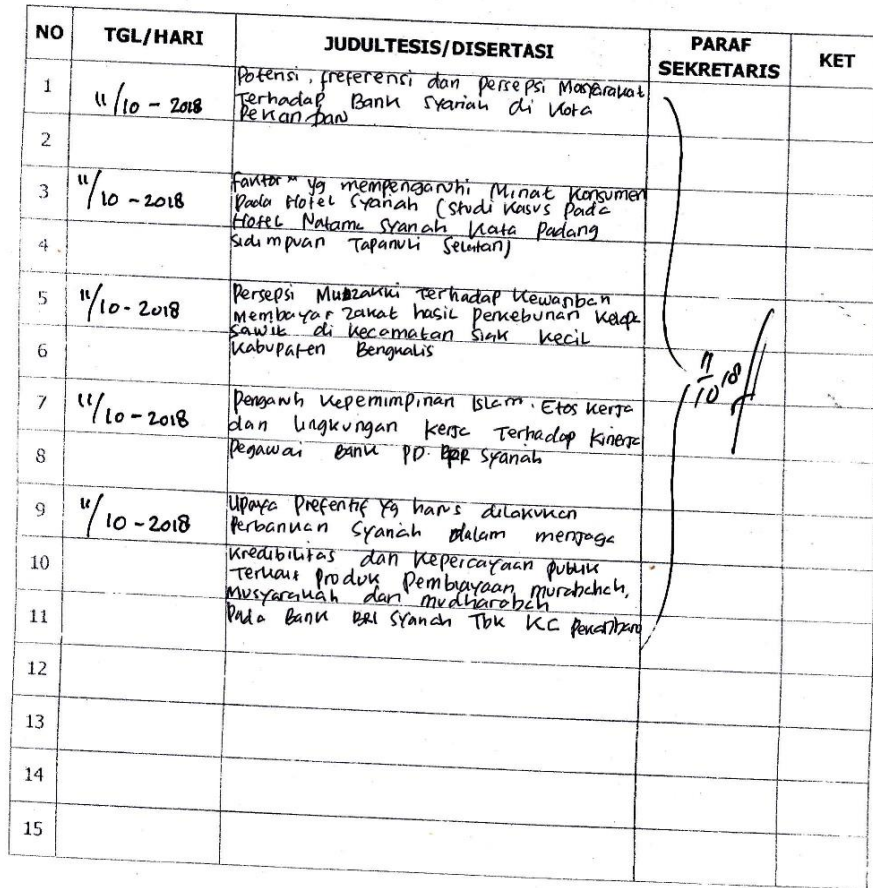 NO TGL/HARI JUDULTESIS/DISERTASI PARAF SEKRETARIS KET
1 11/10 - 2018 Potensi, Preferensi dan Persepsi Masyarakat
Terhadap Bank Syariah di Kota
Pekanbaru
2
3 11/10 - 2018 Faktor" yg mempengaruhi Minat Konsumen
Pada Hotel Syariah (Studi Kasus Pada
Hotel Natama Syariah Kota Padang
4 Sidimpuan Tapanuli Selatan)
5 11/10 - 2018 Persepsi Muzakki Terhadap Kewajiban
Membayar Zakat hasil Perkebunan Kelapa
Sawit di Kecamatan Siak Kecil
6 Kabupaten Bengkalis
7 11/10 - 2018 Pengaruh Kepemimpinan Islam, Etos Kerja
dan Lingkungan Kerja Terhadap Kinerja
8 Pegawai Bank PD. BPR Syariah
11/10 18
9 11/10 - 2018 Upaya Prefentif Yg harus dilakukan
Perbankan Syariah dalam menjaga
10 Kredibilitas dan Kepercayaan publik
Terkait Produk Pembiayaan murabahah,
Musyarakah dan mudharobah
11 Pada Bank BRI Syariah Tbk KC Pekanbaru
12
13
14
15